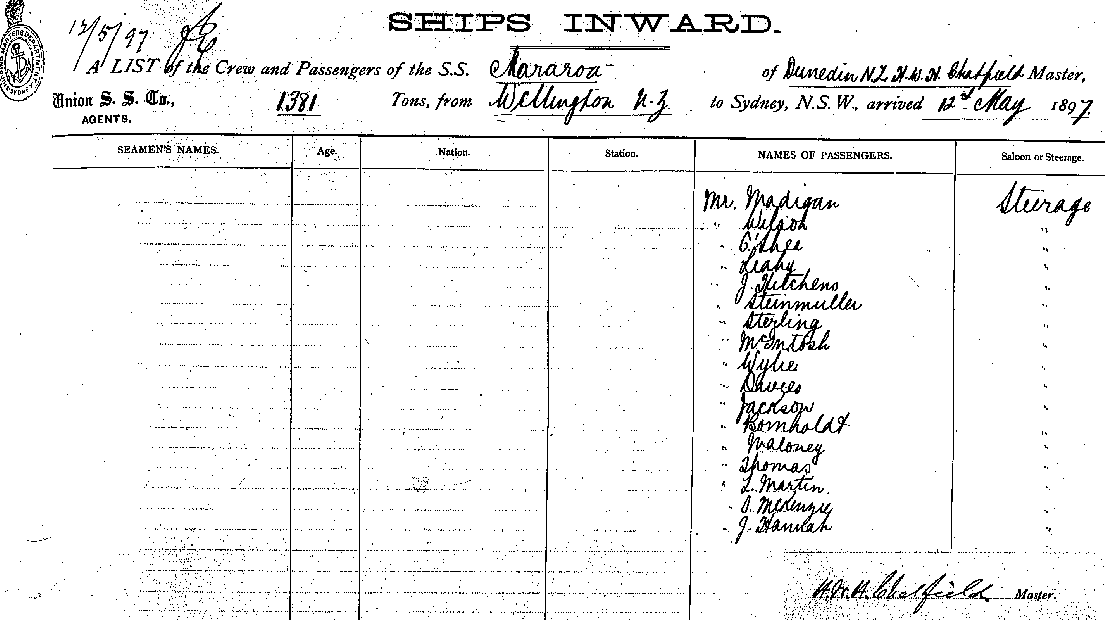 SHIPS INWARD.
12/5/97
A LIST of the Crew and Passengers of the S.S. Mararoa of Dunedin N.Z. H.W.H. Chatfield Master,
Union S. S. Co., 1381 Tons, from Wellington N.Z to Sydney, N.S.W., arrived 12th May 1897
AGENTS.
SEAMEN'S NAMES. Age. Nation. Station. NAMES OF PASSENGERS. Saloon or Steerage.
Mr. Madigan Steerage
" Wilson "
" O'Shea "
" Leahy "
" J. Hitchens "
" Steinmuller "
" Sterling "
" McIntosh "
" Wylie "
" Davies "
" Jackson "
" Bomholdt "
" Maloney "
" Thomas "
" L. Martin. "
" McKenzie "
" J. Hannah "
H.W.H. Chatfield Master.